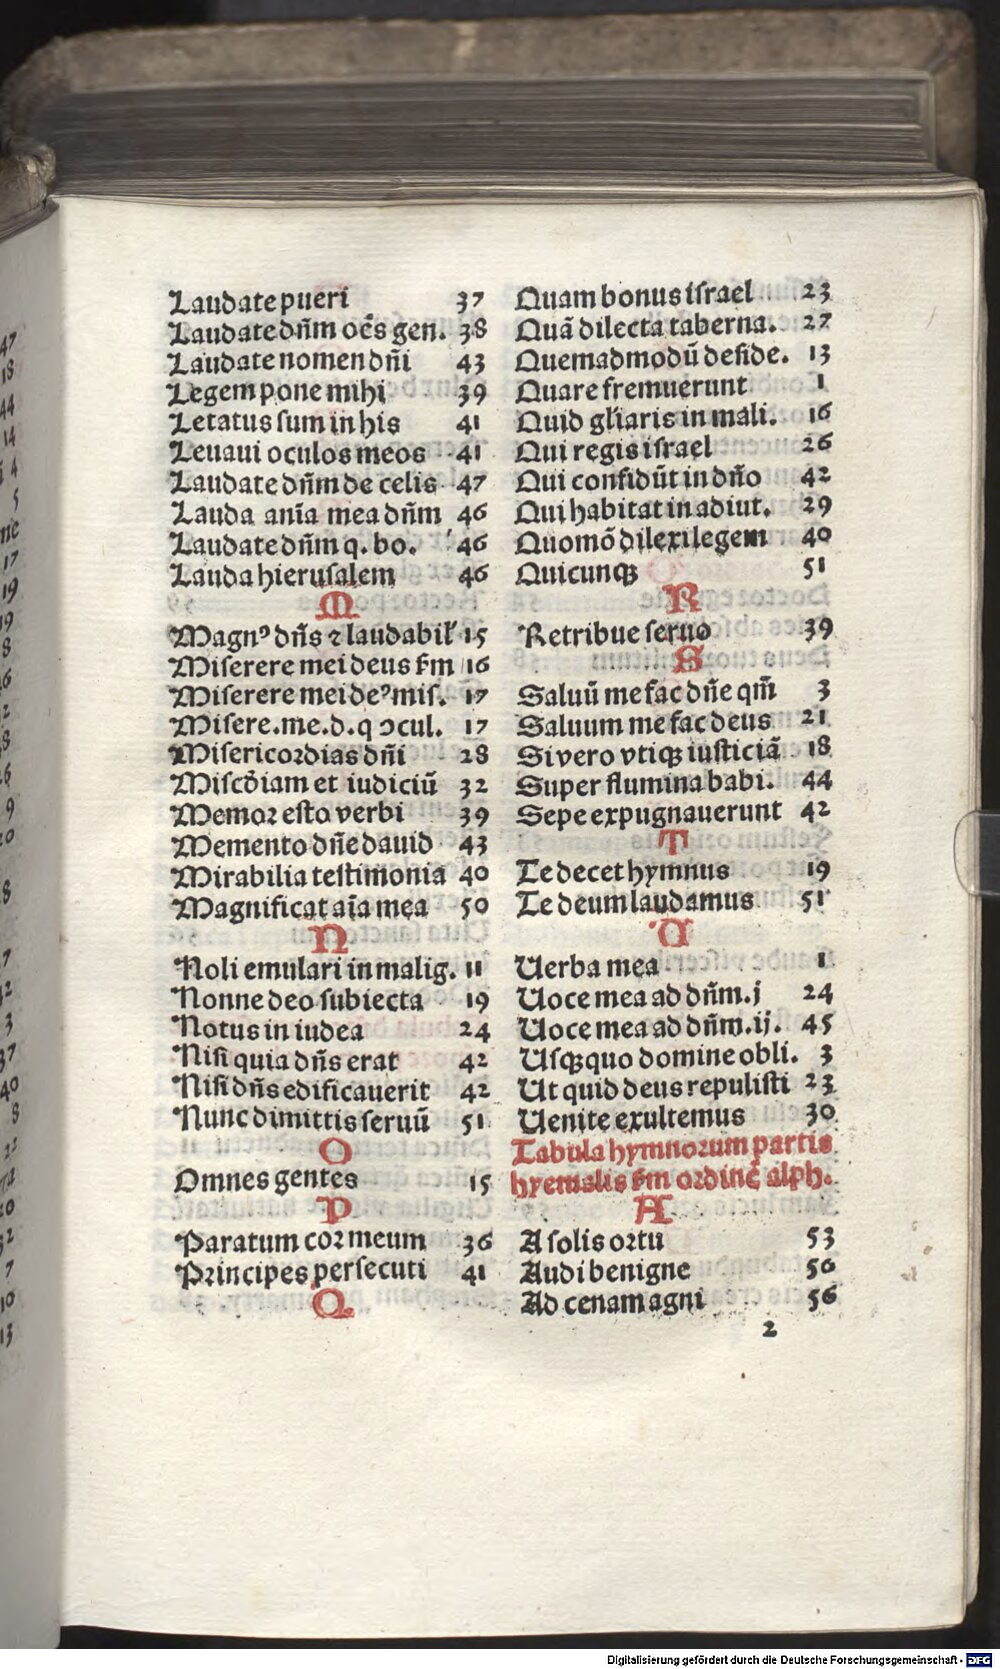 Laudate pueri 37
Laudate dñm oẽs gen. 38
Laudate nomen dñi 43
Legem pone mihi 39
Letatus sum in his 41
Leuaui oculos meos 41
Laudate dñm de celis 47
Lauda anĩa mea dñm 46
Laudate dñm q. bo. 46
Lauda hierusalem 46
M
Magnꝰ dñs ⁊ laudabil' 15
Miserere mei deus ẜm 16
Miserere mei deꝰ mis. 17
Misere.me.d.q ↄcul. 17
Misericordias dñi 28
Miscõiam et iudiciũ 32
Memor esto verbi 39
Memento dñe dauid 43
Mirabilia testimonia 40
Magnificat aĩa mea 50
N
Noli emulari in malig. 11
Nonne deo subiecta 19
Notus in iudea 24
Nisi quia dñs erat 42
Nisi dñs edificauerit 42
Nunc dimittis seruũ 51
O
Omnes gentes 15
P
Paratum cor meum 36
Principes persecuti 41
Q
Quam bonus israel 23
Quã dilecta taberna. 27
Quemadmodũ deside. 13
Quare fremuerunt 1
Quid gl'iaris in mali. 16
Qui regis israel 26
Qui confidũt in dño 42
Qui habitat in adiut. 29
Quomõ dilexi legem 40
Quicunqꝫ 51
R
Retribue seruo 39
S
Saluũ me fac dñe qm̃ 3
Saluum me fac deus 21
Si vero vtiqꝫ iusticiã 18
Super flumina babi. 44
Sepe expugnauerunt 42
T
Te decet hymnus 19
Te deum laudamus 51
U
Uerba mea 1
Uoce mea ad dñm.j 24
Uoce mea ad dñm.ij. 45
Usqꝫquo domine obli. 3
Ut quid deus repulisti 23
Uenite exultemus 30
Tabula hymnorum partis
hyemalis ẜm ordinẽ alph.
A
A solis ortu 53
Audi benigne 56
Ad cenam agni 56
2
47
18
44
14
4
5
17
19
19
8
Digitalisierung gefördert durch die Deutsche Forschungsgemeinschaft - DFG